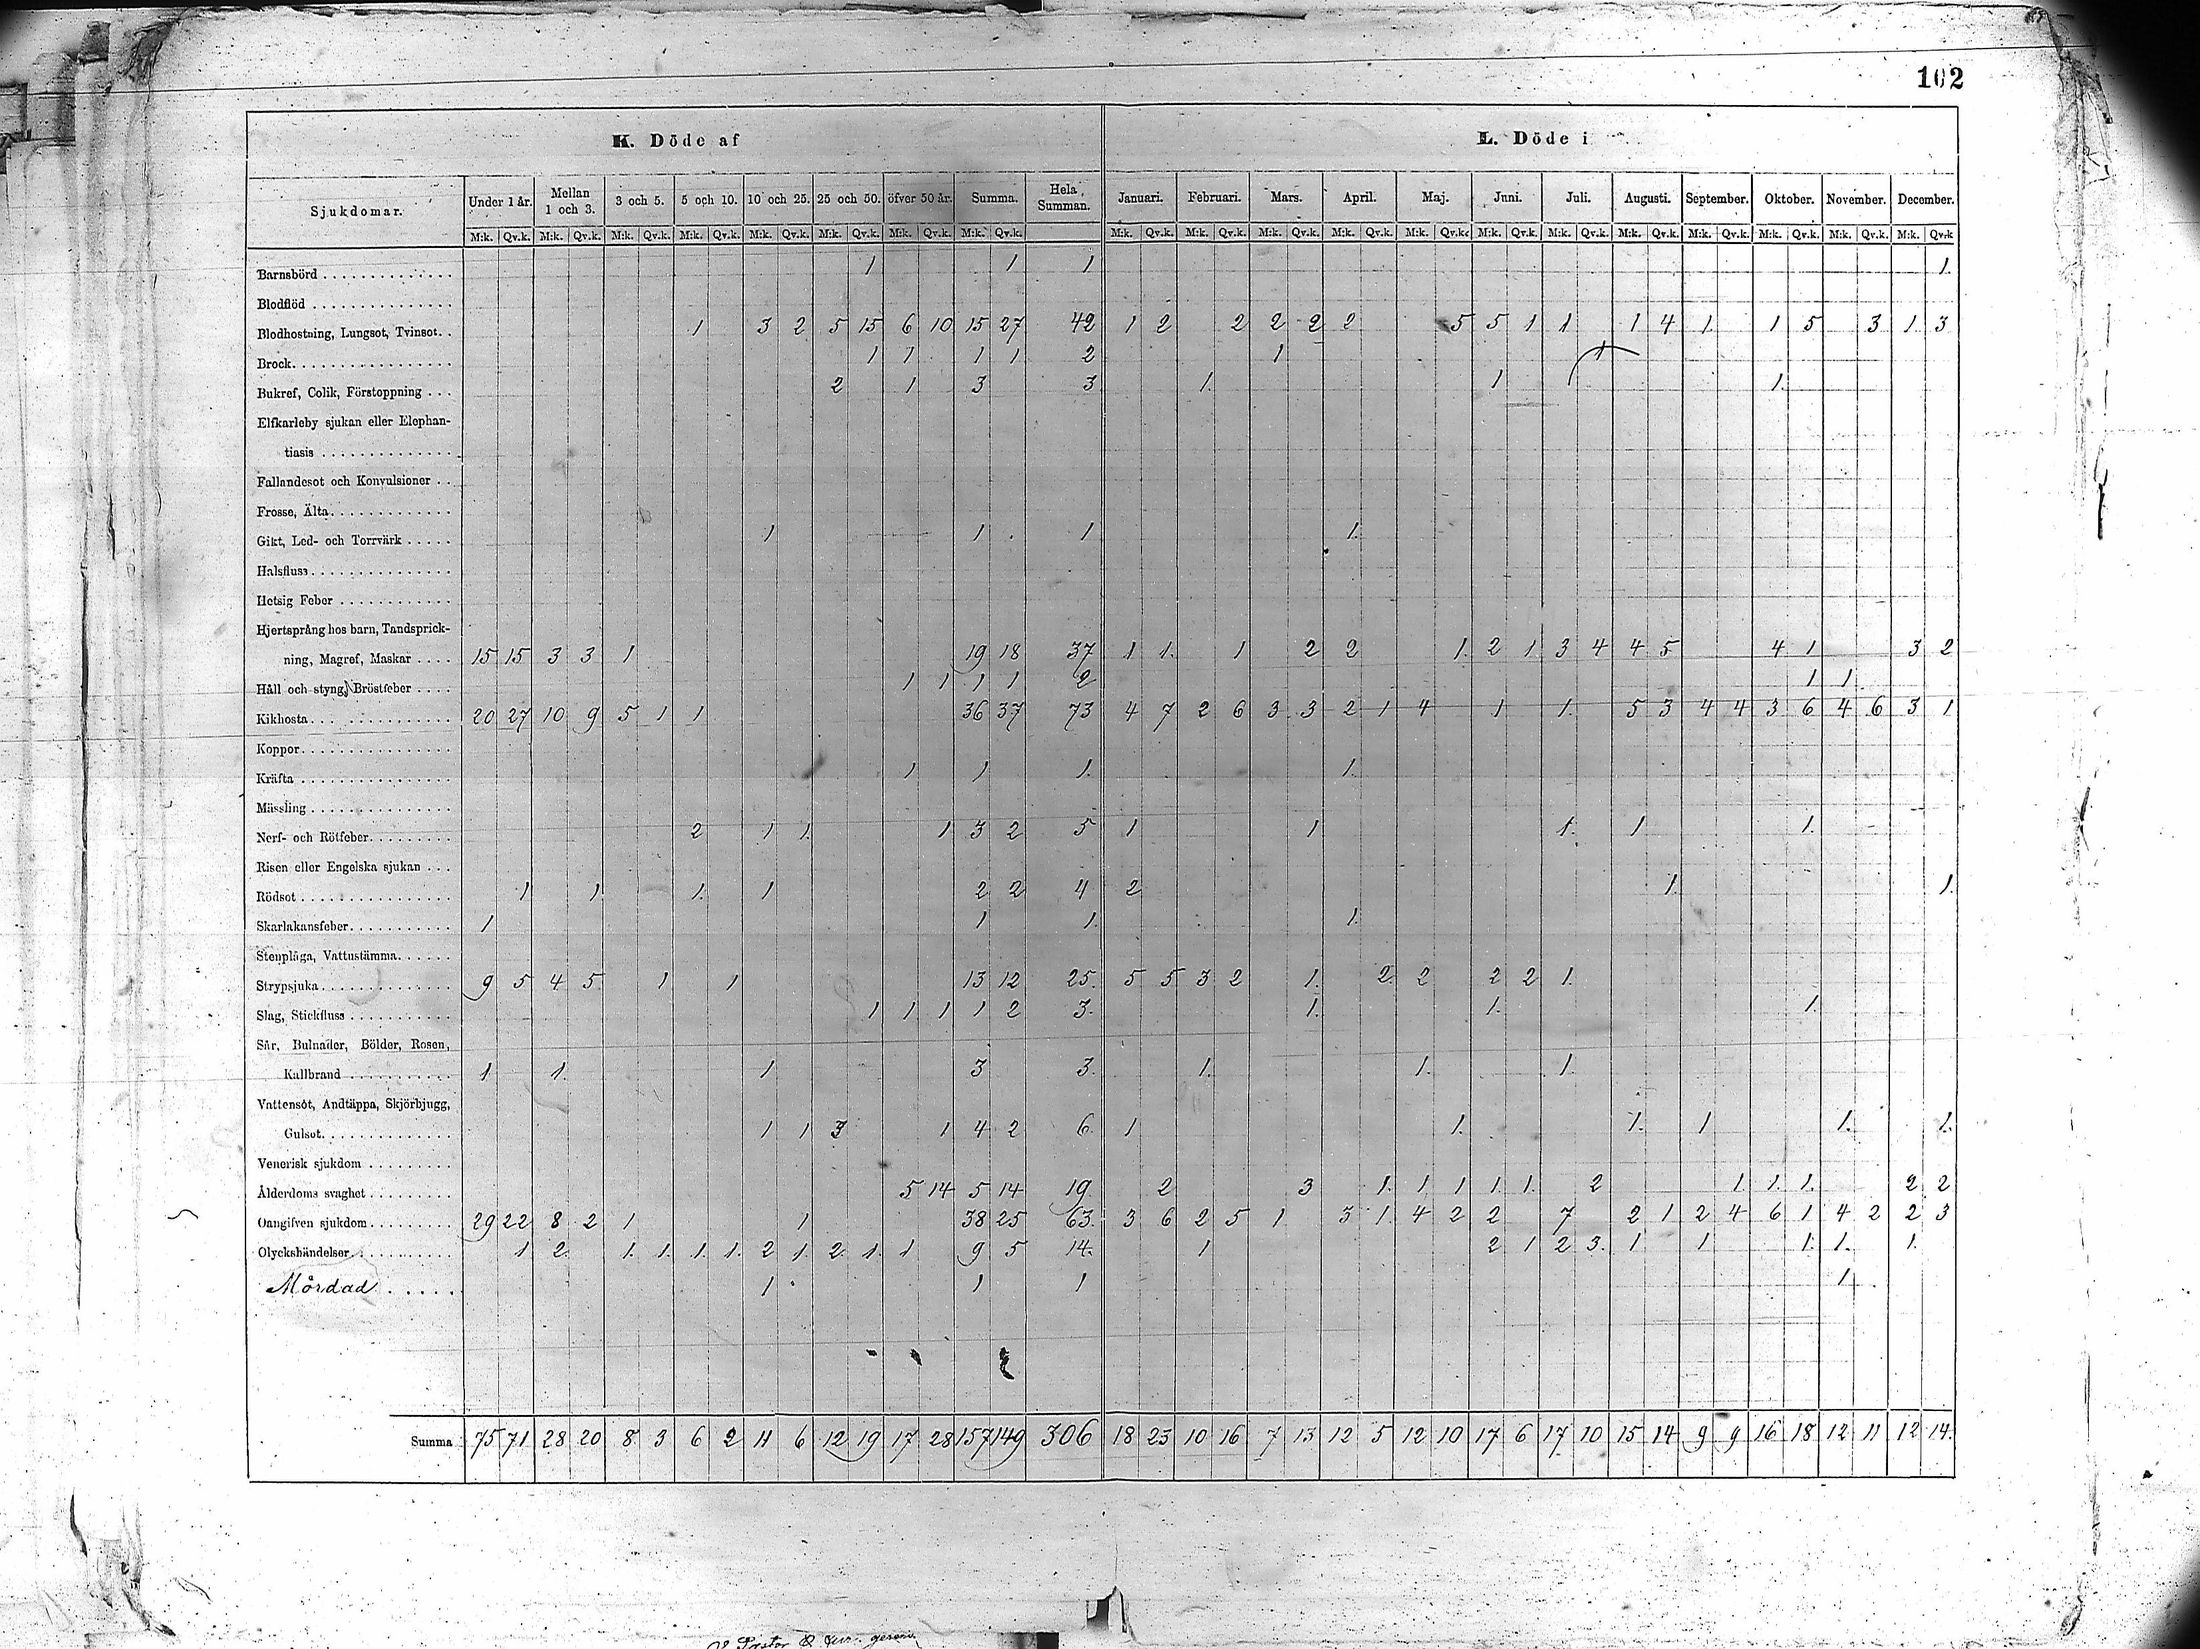 102
K. Döde af L. Döde i
Sjukdomar. Under 1 år. Mellan 1 och 3. 3 och 5. 5 och 10. 10 och 25. 25 och 50. öfver 50 år. Summa. Hela Summan. Januari. Februari. Mars. April. Maj. Juni. Juli. Augusti. September. Oktober. November. December.
M:k. Qv.k. M:k. Qv.k. M:k. Qv.k. M:k. Qv.k. M:k. Qv.k. M:k. Qv.k. M:k. Qv.k. M:k. Qv.k. M:k. Qv.k. M:k. Qv.k. M:k. Qv.k. M:k. Qv.k. M:k. Qv.k. M:k. Qv.k. M:k. Qv.k. M:k. Qv.k. M:k. Qv.k. M:k. Qv.k. M:k. Qv.k. M:k. Qv.k
Barnsbörd 1 1 1 1.
Blodflöd
Blodhostning, Lungsot, Tvinsot. 1 3 2 5 15 6 10 15 27 42 1 2 2 2 2 2 5 5 1 1 1 4 1 1 5 3 1 3
Brock 1 1 1 1 2 1 1
Bukref, Colik, Förstoppning 2 1 3 3 1. 1 1.
Elfkarleby sjukan eller Elephan-
tiasis
Fallandesot och Konvulsioner
Frosse, Älta
Gikt, Led- och Torrvärk 1 1 1 1.
Halsfluss
Hetsig Feber
Hjertsprång hos barn, Tandsprick-
ning, Magref, Maskar 15 15 3 3 1 19 18 37 1 1. 1 2 2 1. 2 1 3 4 4 5 4 1 3 2
Håll och styng, Bröstfeber 1 1 1 1 2 1 1
Kikhosta 20 27 10 9 5 1 1 36 37 73 4 7 2 6 3 3 2 1 4 1 1. 5 3 4 4 3 6 4 6 3 1
Koppor
Kräfta 1 1 1. 1.
Mässling
Nerf- och Rötfeber 2 1 1. 1 3 2 5 1 1 1. 1 1.
Risen eller Engelska sjukan
Rödsot 1 1 1. 1 2 2 4 2 1. 1.
Skarlakansfeber 1 1 1. 1.
Stenplåga, Vattustämma
Strypsjuka 9 5 4 5 1 1 13 12 25. 5 5 3 2 1. 2. 2 2 2 1.
Slag, Stickfluss 1 1 1 1 2 3. 1. 1. 1.
Sår, Bulnader, Bölder, Rosen,
Kallbrand 1 1. 1 3 3. 1. 1. 1.
Vattensot, Andtäppa, Skjörbjugg,
Gulsot 1 1 3 1 4 2 6. 1 1. 1. 1 1. 1.
Venerisk sjukdom
Ålderdoms svaghet 5 14 5 14 19 2 3 1. 1 1 1. 1. 2 1 1. 1. 2 2
Oangifven sjukdom 29 22 8 2 1 1 38 25 63. 3 6 2 5 1 3 1. 4 2 2 7 2 1 2 4 6 1 4 2 2 3
Olyckshändelser 1 2. 1. 1. 1. 1. 2 1. 2. 1. 1 9 5 14. 1 2 1 2 3. 1 1 1. 1. 1.
Mördad 1 1 1 1
Summa 75 71 28 20 8 3 6 2 11 6 12 19 17 28 157 149 306 18 23 10 16 7 13 12 5 12 10 17 6 17 10 15 14 9 9 16 18 12 11 12 14.